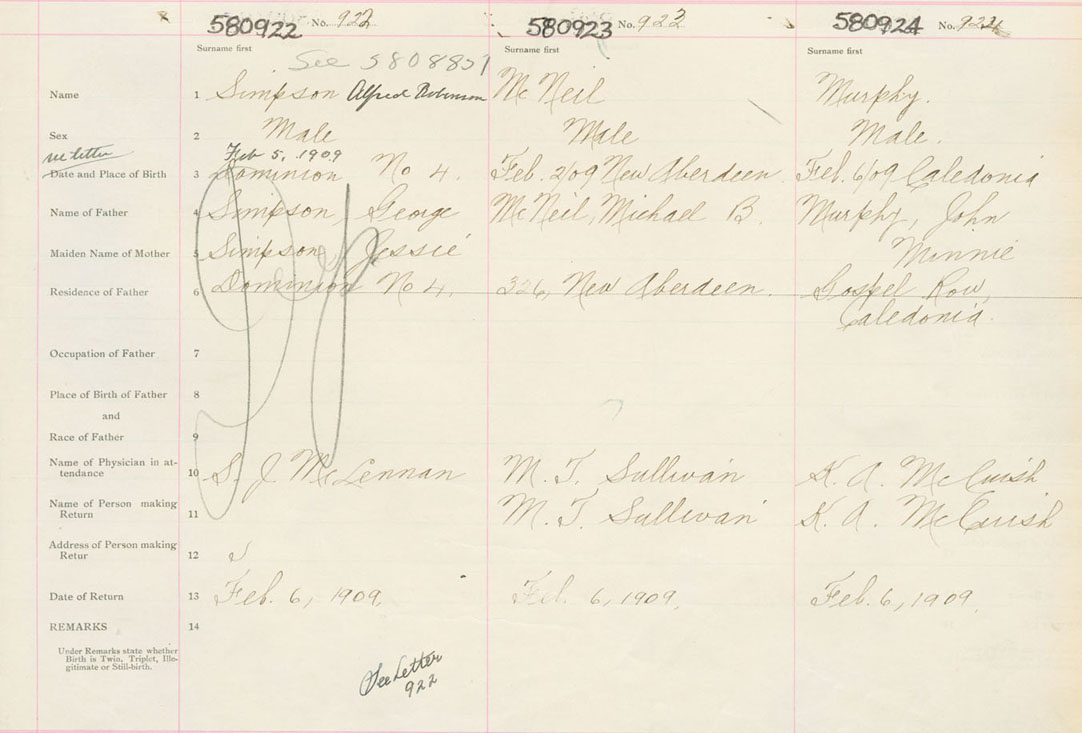 580922 No. 922 580923 No. 923 580924 No. 924
Surname first Surname first Surname first
See 5808851
Name 1 Simpson Alfred Robinson McNeil Murphy.
Sex 2 Male Male Male.
see letter Feb 5, 1909
Date and Place of Birth 3 Dominion No 4. Feb. 2/09 New Aberdeen. Feb. 6/09 Caledonia
Name of Father 4 Simpson, George McNeil, Michael B. Murphy, John
Maiden Name of Mother 5 Simpson, Jessie Minnie
Residence of Father 6 Dominion No 4. 326, New Aberdeen. Gospel Row,
Caledonia.
Occupation of Father 7
Place of Birth of Father 8
and
Race of Father 9
Name of Physician in at-
tendance 10 S. J. McLennan M. T. Sullivan K. A. McCuish
Name of Person making
Return 11 M. T. Sullivan K. A. McCuish
Address of Person making
Retur 12
Date of Return 13 Feb. 6, 1909. Feb. 6, 1909. Feb. 6, 1909.
REMARKS 14
Under Remarks state whether
Birth is Twin, Triplet, Ille-
gitimate or Still-birth.
See Letter
922